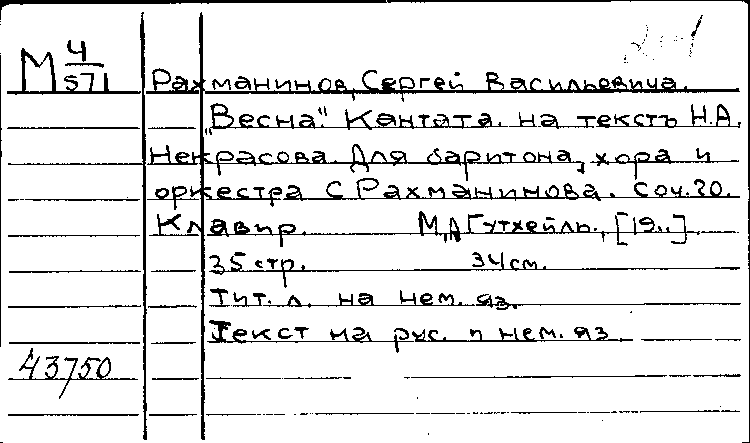 М 4/571
Рахманинов, Сергей Васильевича.
"Весна". Кантата. на текстъ Н.А.
Некрасова. Для баритона, хора и
оркестра С Рахманинова. Соч.20.
Клавир. М, А Гутхейль., [19..].
35 стр. 34 см.
Тит. л. на нем. яз.
Текст на рус. и нем. яз.
43750